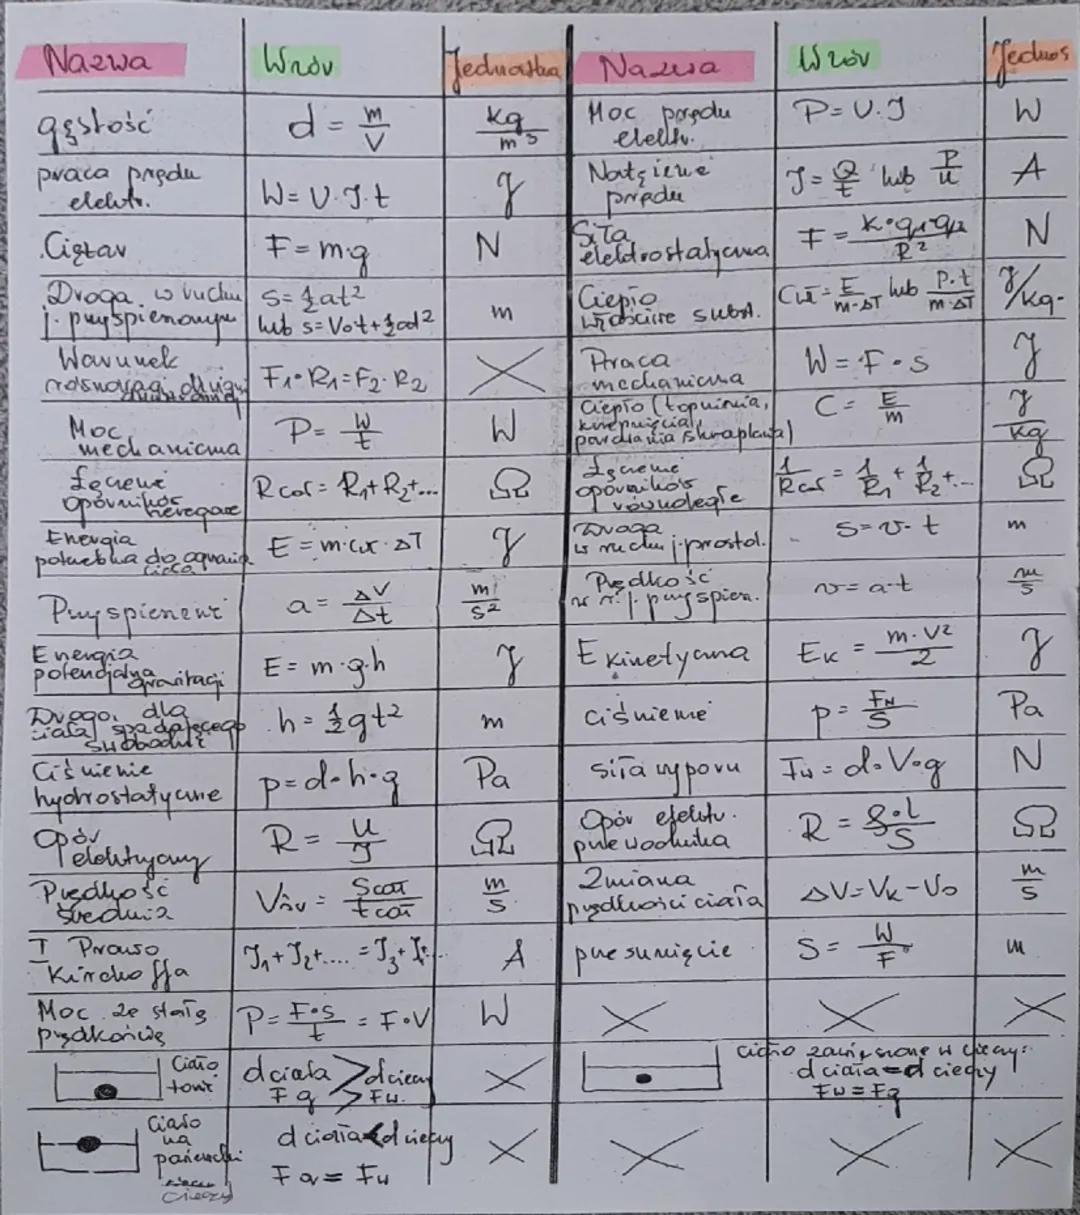 Nazwa Wzór Jednostka Nazwa Wzór Jednos
gęstość d = m/V kg/m³ Moc prądu elektr. P = U·I W
praca prądu elektr. W = U·I·t J Natężenie prądu I = Q/t lub P/U A
Ciężar F = m·g N Siła elektrostatyczna F = k·q₁·q₂/R² N
Droga w ruchu j. przyspieszonym s = ½at² lub s = V₀t + ½at² m Ciepło właściwe subst. Cw = E/m·ΔT lub P·t/m·ΔT J/kg·
Warunek równowagi dźwigni F₁·R₁ = F₂·R₂ X Praca mechaniczna W = F·s J
Moc mechaniczna P = W/t W Ciepło (topnienia, krzepnięcia, parowania skraplania) C = E/m J/kg
Łączenie oporników szeregowe Rcał = R₁+R₂+... Ω Łączenie oporników równoległe 1/Rcał = 1/R₁ + 1/R₂+... Ω
Energia potrzebna do ogrzania ciała E = m·cw·ΔT J Droga w ruchu j. prostol. s = v·t m
Przyspieszenie a = ΔV/Δt m/s² Prędkość w r. j. przyspiesz. v = a·t m/s
Energia potencjalna grawitacji E = m·g·h J E kinetyczna Ek = m·V²/2 J
Droga dla ciała spadającego swobodnie h = ½gt² m ciśnienie p = FN/S Pa
Ciśnienie hydrostatyczne p = d·h·g Pa siła wyporu Fw = d·V·g N
Opór elektryczny R = U/I Ω Opór elektr. przewodnika R = ρ·l/S Ω
Prędkość średnia Vśr = Scał/tcał m/s Zmiana prędkości ciała ΔV = Vk − V₀ m/s
I Prawo Kirchoffa I₁+I₂+.... = I₃+I₄... A przesunięcie S = W/F m
Moc ze stałą prędkością P = F·s/t = F·V W X X X
Ciało tonie d ciała > d cieczy Fg > Fw X ciało zawieszone w cieczy: d ciała = d cieczy Fw = Fg
Ciało na powierzchni cieczy d ciała < d cieczy Fg = Fw X X X X